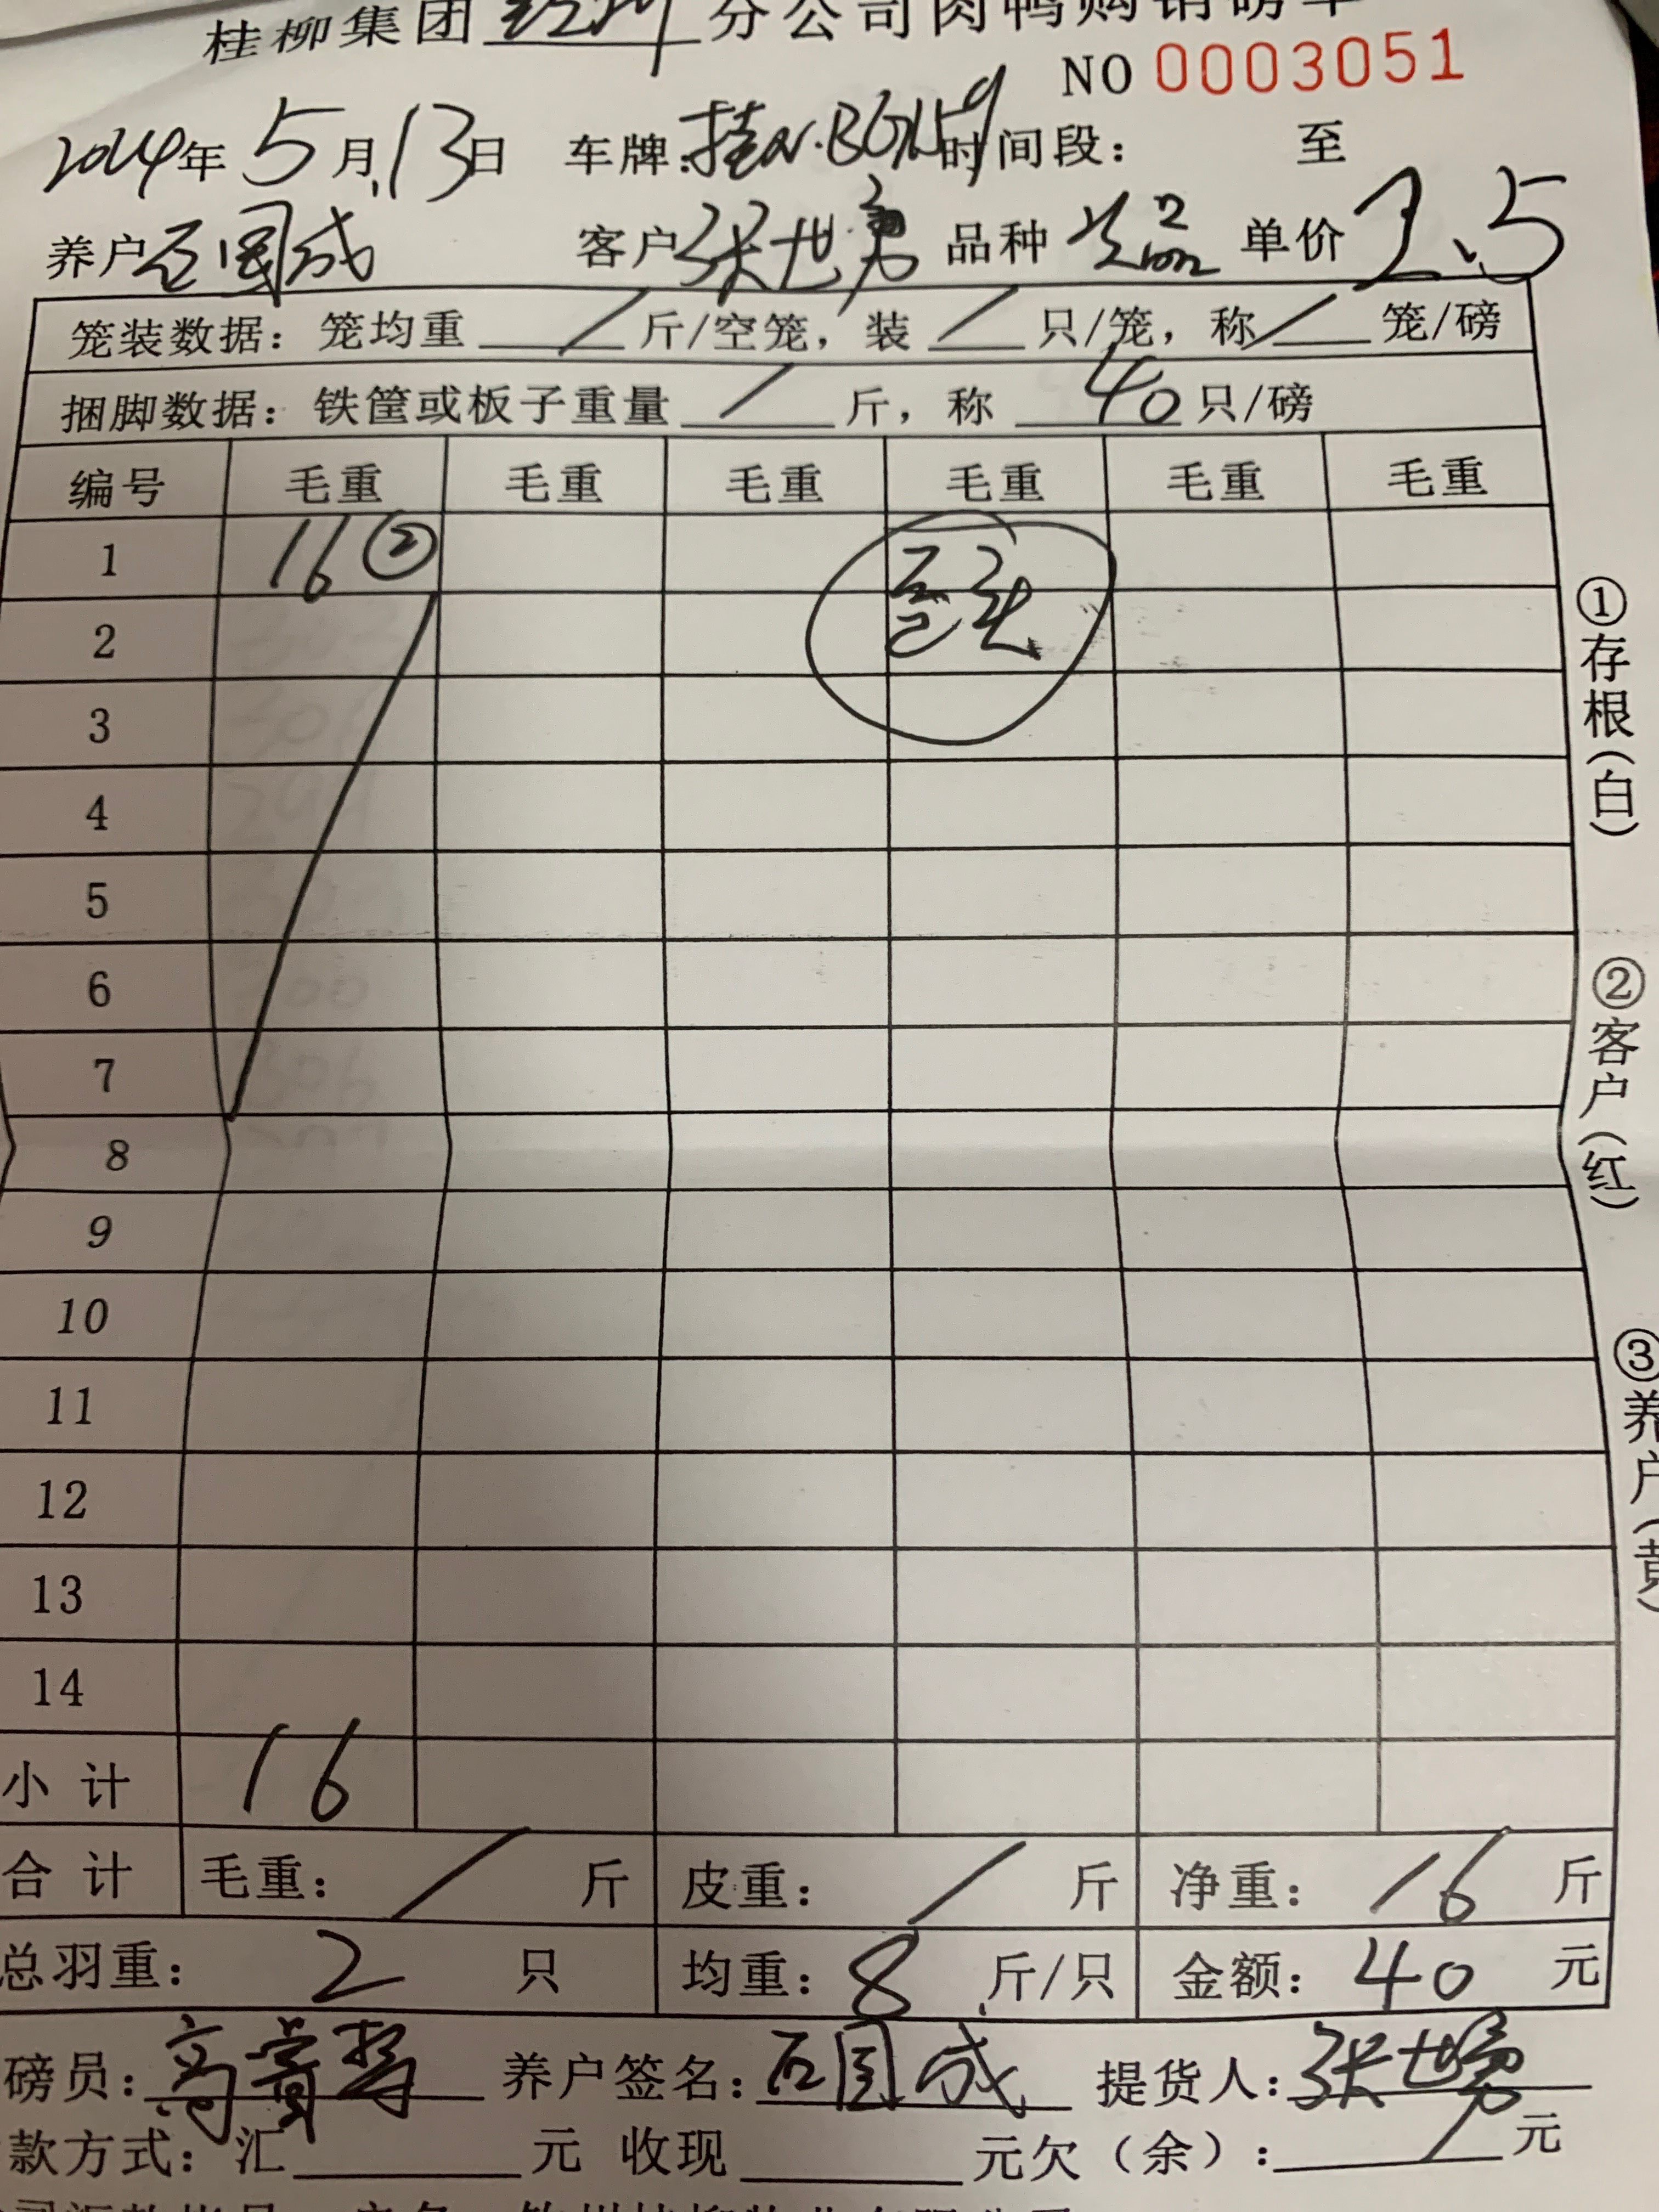 桂柳集团 分公司肉鸭购销磅单
NO 0003051
2024年5月13日 车牌: 桂N·BG 159 时间段: 至
养户 石国成 客户 张世勇 品种 单价 2.5
笼装数据: 笼均重 / 斤/空笼, 装 / 只/笼, 称 / 笼/磅
捆脚数据: 铁筐或板子重量 / 斤, 称 40 只/磅
编号 毛重 毛重 毛重 毛重 毛重 毛重
1 16 ②
2
3
4
5
6
7
8
9
10
11
12
13
14
小计 16
合计 毛重: / 斤 皮重: / 斤 净重: 16 斤
总羽重: 2 只 均重: 8 斤/只 金额: 40 元
磅员: 养户签名: 石国成 提货人: 张世勇
款方式: 汇 元 收现 元 欠(余): / 元
①存根(白)
②客户(红)
③养户(黄)